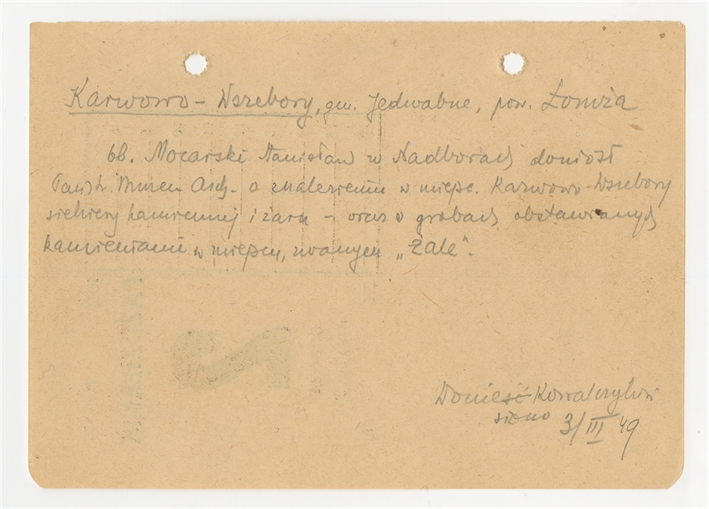 Karwowo-Wszebory, gm. Jedwabne, pow. Łomża
Ob. Mocarski Stanisław w Nadborach doniósł
Państw. Muzeu Arch. o znalezieniu w miejsc. Karwowo-Wszebory
siekiery kamiennej i żaren - oraz o grobach obstawianych
kamieniami w miejscu, zwanym „Żale".
Donieść Kowalczykow
siono 3/III 49